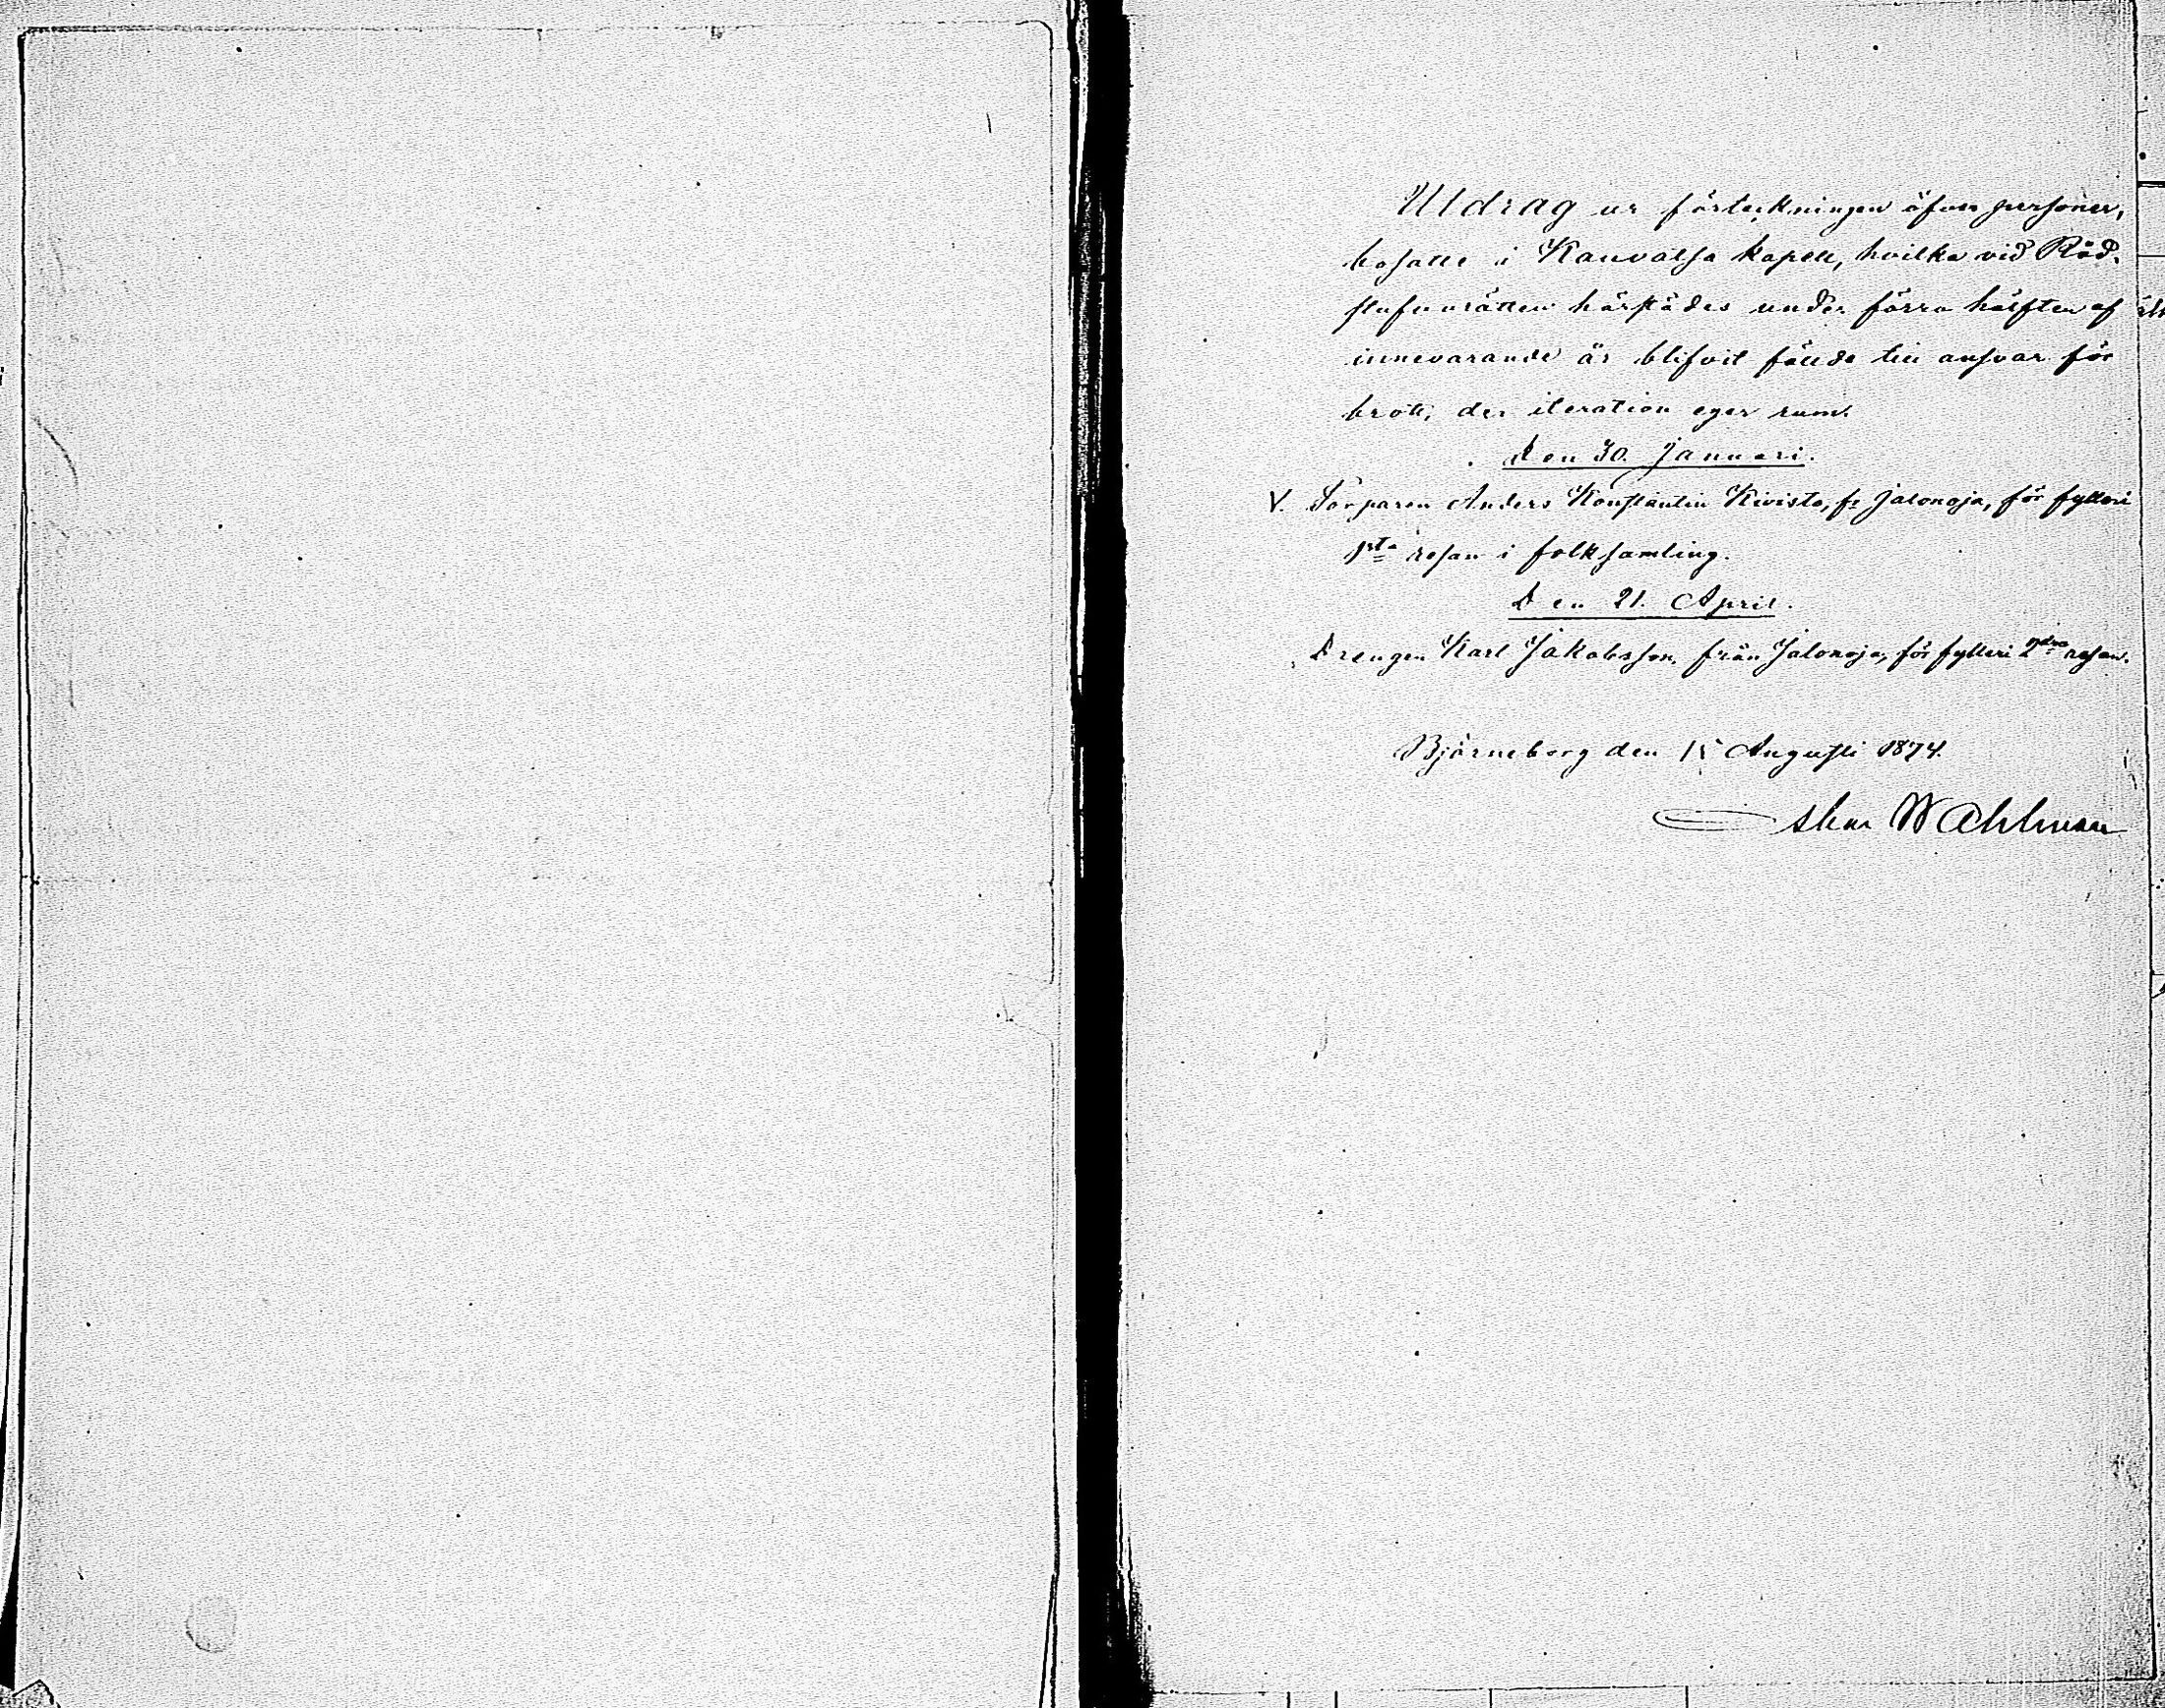 Utdrag ur förteckningen öfver personer,
bosatte i Kauvatsa kapell, hvilka vid Råd-
stufvurätten härstädes under förra hälften af
innevarande år blifvit fällde till ansvar för
brott, der iteration eger rum.
Den 30. Januari.
V. Torparen Anders Konstantin Kivisto, fr Jalonoja, för fylleri
1sta resan i folksamling.
Den 21. April.
Drengen Karl Jakobsson, från Jalonoja, för fylleri 2dra resan.
Björneborg den 15 Augusti 1874.
Oskar Wahlman